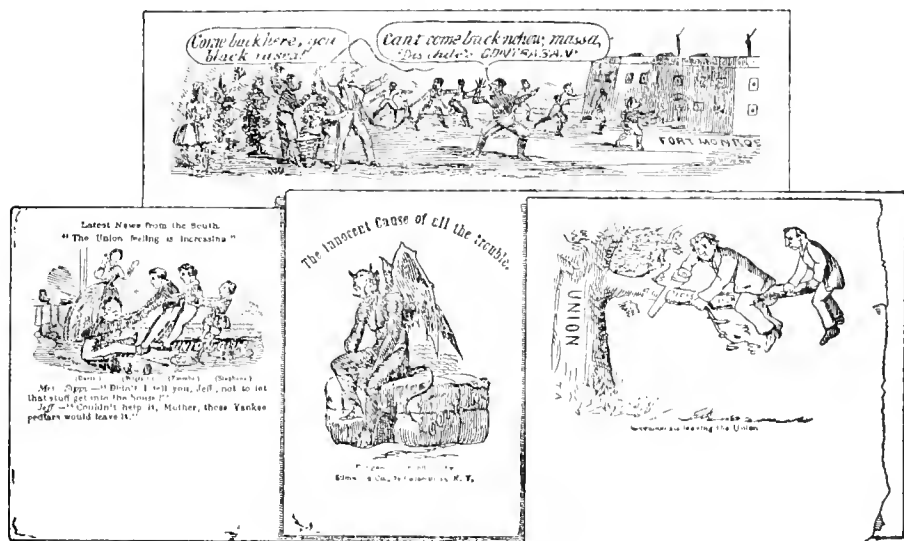 Come back here, you
black rascal
Can't come back nohow, massa,
Dis chile's CONTRABAN'
FORT MONROE
Latest News from the South.
"The Union feeling is increasing."
(Davis) (Toombs) (Stephens)
Mrs. Sippi—"Didn't I tell you, Jeff, not to let
that stuff get into the house?"
Jeff—"Couldn't help it, Mother, those Yankee
pedlars would leave it."
The Innocent Cause of all the trouble.
N. Y.
UNION
leaving the Union